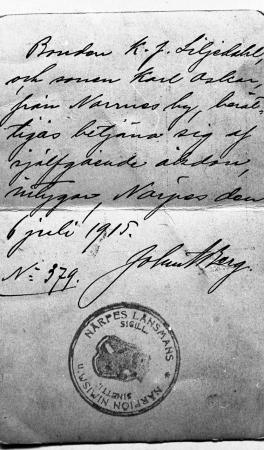 Bonden K. J. Liljedahl,
och sonen Karl Oskar,
från Narrnes by, berät-
tigas betjäna sig af
självgående åkdon,
intygar, Närpes den
6 juli 1915.
No 379. John Berg.
NÄRPES LÄNSMANS
SIGILL.
NÄRPIÖN NIMISM:N
SINETTI.